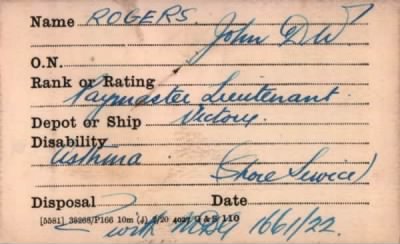 Name ROGERS
John D W
O.N.
Rank or Rating
Paymaster Lieutenant
Depot or Ship Victory.
Disability
Asthma (Shore Service)
Disposal Date
[5581] 35268/P166 10m (4) 4/20 4027 G & S 110
with 1661/22.